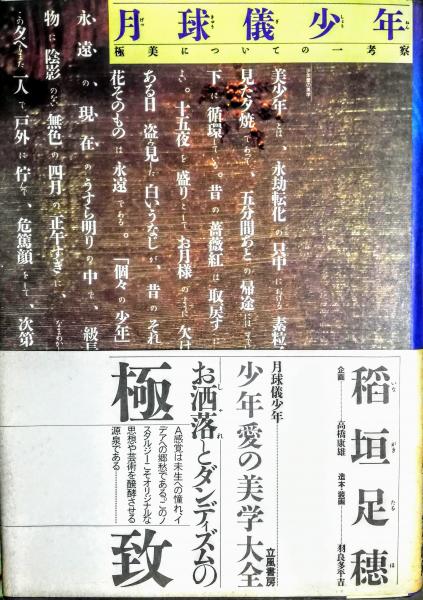 月球儀少年
極美についての一考察
美少年とは、永劫転化の只中における素粒
見た夕焼であって、五分間あとの帰途には
下に循環している。昔の薔薇紅は取戻す
よ。十五夜を盛りとしてお月様のように欠け
ある日 盗み見た白いうなじが、昔のそれ
花そのものは永遠である。「個々の少年」
永遠の、現在のうすら明りの中で、級長
物に陰影のない無色の四月の正午すぎに、
この夕べもまた一人で戸外に佇んで、危篤顔をして、次第
稲垣足穂
いながきたるほ
企画 高橋康雄
造本・装画 羽良多平吉
月球儀少年
少年愛の美学大全
立風書房
お洒落とダンディズムの
しゃれ
極致
A感覚は未生への憧れ、イ
デアへの郷愁である。このノ
スタルジーこそオリジナルな
思想や芸術を醗酵させる
源泉である……